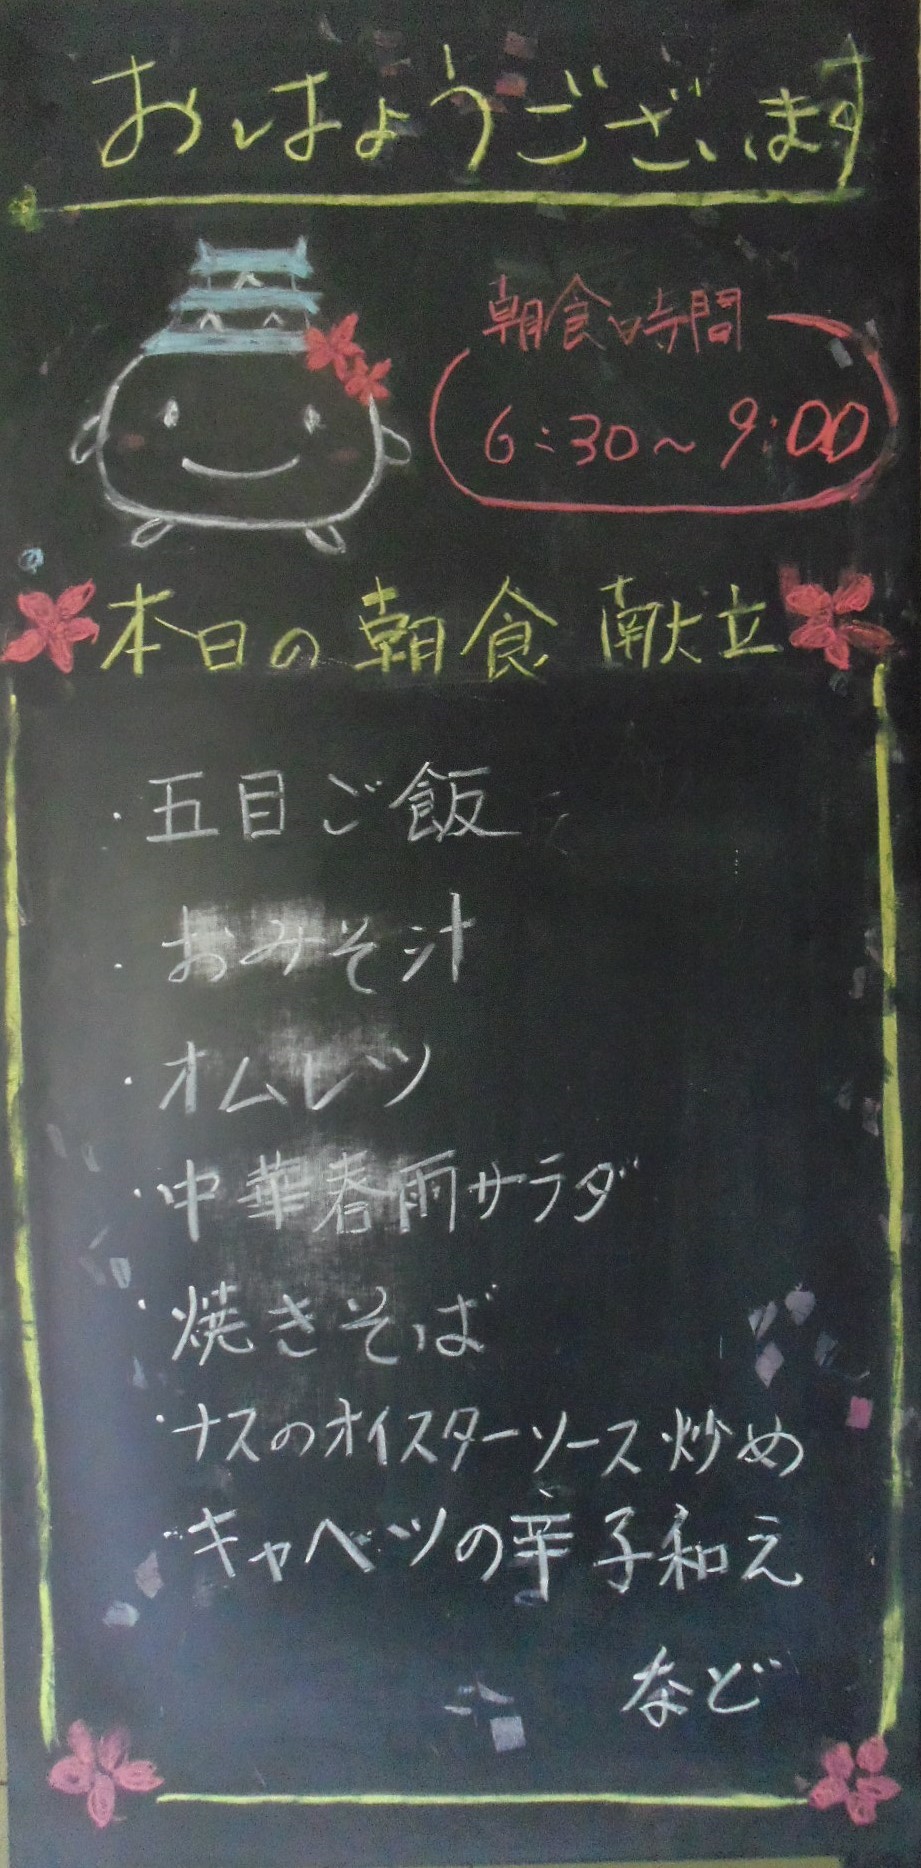 おはようございます
朝食時間
6:30～9:00
本日の朝食 献立
・五目ご飯
・おみそ汁
・オムレツ
・中華春雨サラダ
・焼きそば
・ナスのオイスターソース炒め
・キャベツの辛子和え
など